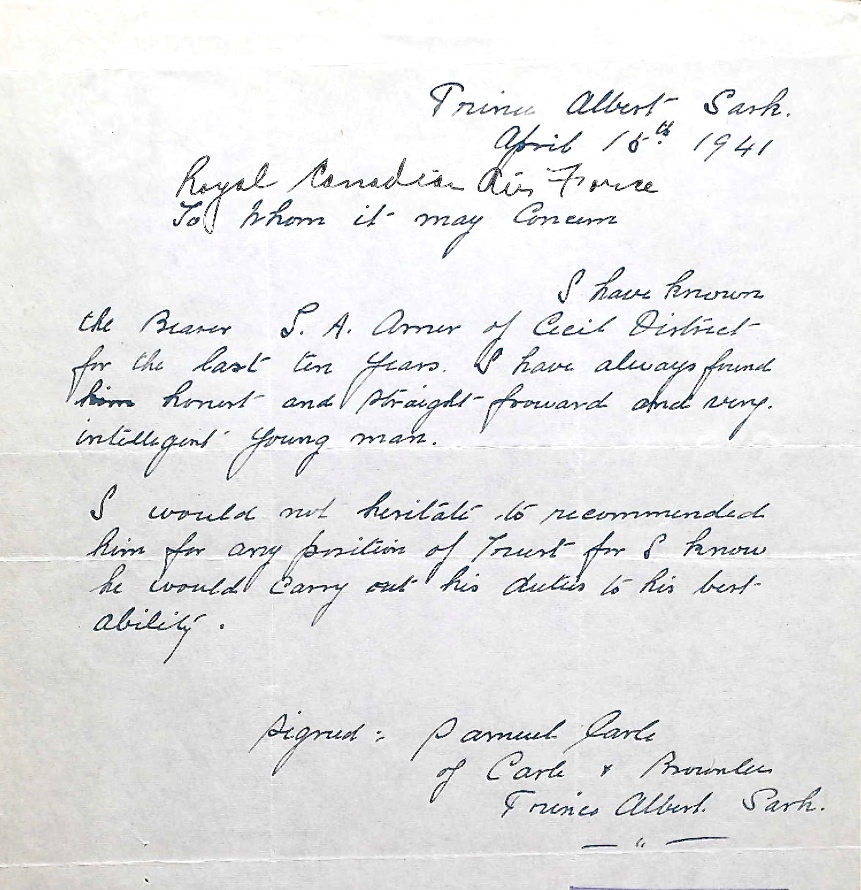 Prince Albert Sask.
April 15th 1941
Royal Canadian Air Force
To Whom it may Concern
I have known
the Bearer S. A. Amer of Cecil District
for the last ten years. I have always found
him honest and straight froward and very.
intelligent young man.
I would not hesitate to recommended
him for any position of Trust for I know
he would carry out his duties to his best
ability.
Signed: Samuel Carle
of Carle & Brownlee
Prince Albert. Sask.
— " —